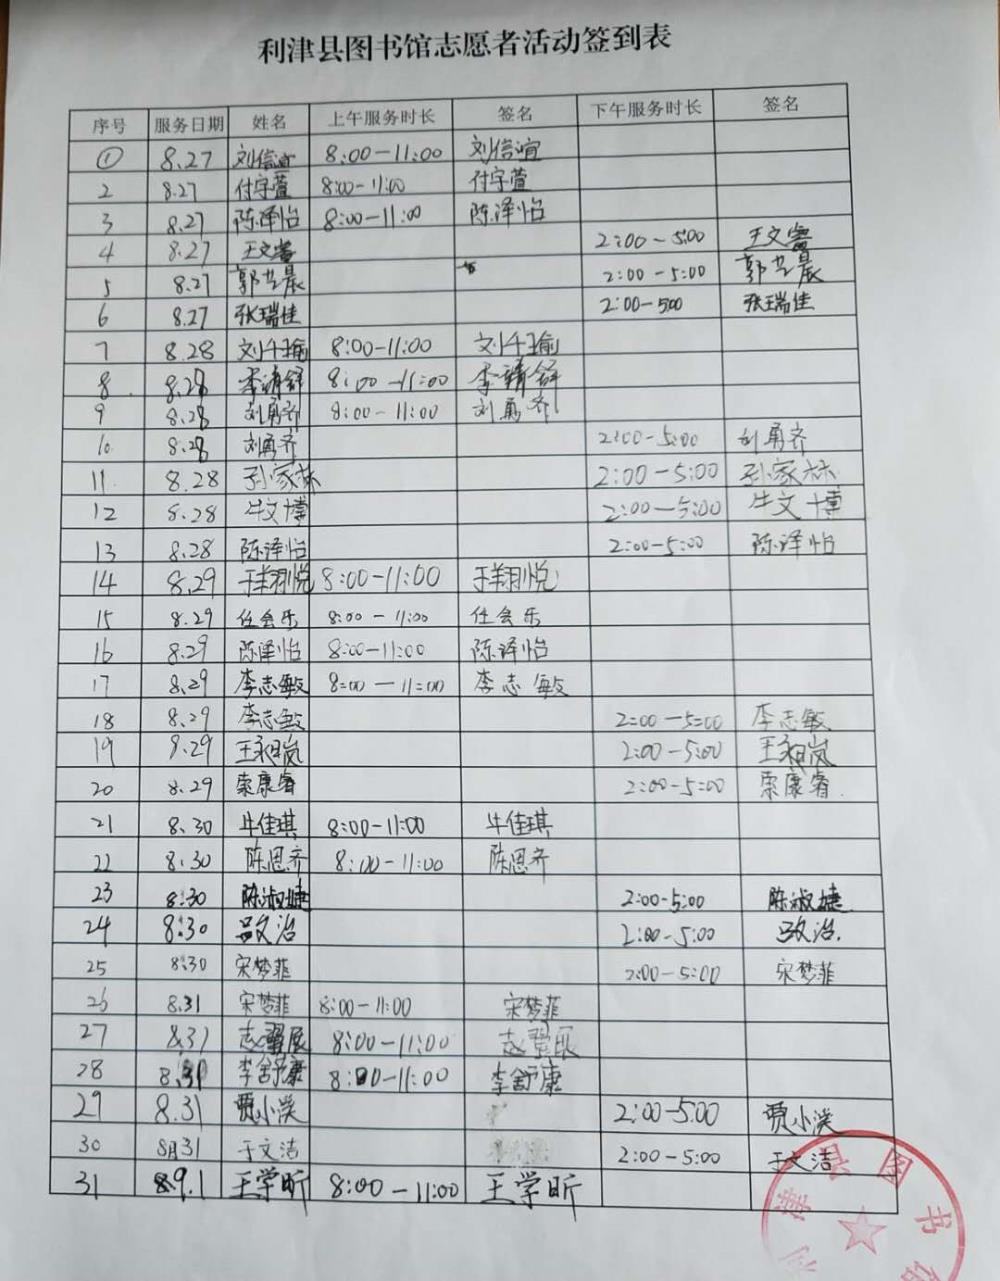 利津县图书馆志愿者活动签到表
序号 服务日期 姓名 上午服务时长 签名 下午服务时长 签名
① 8.27 刘信宜 8:00-11:00 刘信宜
2 8.27 付宇萱 8:00-11:00 付宇萱
3 8.27 陈泽怡 8:00-11:00 陈泽怡
4 8.27 王文睿 2:00-5:00 王文睿
5 8.27 郭艺晨 2:00-5:00 郭艺晨
6 8.27 张瑞佳 2:00-500 张瑞佳
7 8.28 刘千瑜 8:00-11:00 刘千瑜
8 8.28 李靖舒 8:00-11:00 李靖舒
9 8.28 刘勇齐 8:00-11:00 刘勇齐
10 8.28 刘勇齐 2:00-5:00 刘勇齐
11 8.28 孙家林 2:00-5:00 孙家林
12 8.28 牛文博 2:00-5:00 牛文博
13 8.28 陈泽怡 2:00-5:00 陈泽怡
14 8.29 于翔悦 8:00-11:00 于翔悦
15 8.29 任会乐 8:00-11:00 任会乐
16 8.29 陈泽怡 8:00-11:00 陈泽怡
17 8.29 李志敏 8:00-11:00 李志敏
18 8.29 李志敏 2:00-5:00 李志敏
19 8.29 2:00-5:00
20 8.29 索康睿 2:00-5:00 索康睿
21 8.30 牛佳琪 8:00-11:00 牛佳琪
22 8.30 陈恩齐 8:00-11:00 陈恩齐
23 8:30 陈淑婕 2:00-5:00 陈淑婕
24 8:30 2:00-5:00
25 8:30 宋梦菲 2:00-5:00 宋梦菲
26 8.31 宋梦菲 8:00-11:00 宋梦菲
27 8.31 8:00-11:00
28 8.31 李舒康 8:00-11:00 李舒康
29 8.31 贾小淏 2:00-5:00 贾小淏
30 8月31 于文洁 2:00-5:00 于文洁
31 9.1 王学昕 8:00-11:00 王学昕
津县图书